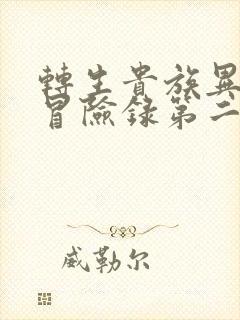 轉生貴族異
冒險錄第二
威勒尔